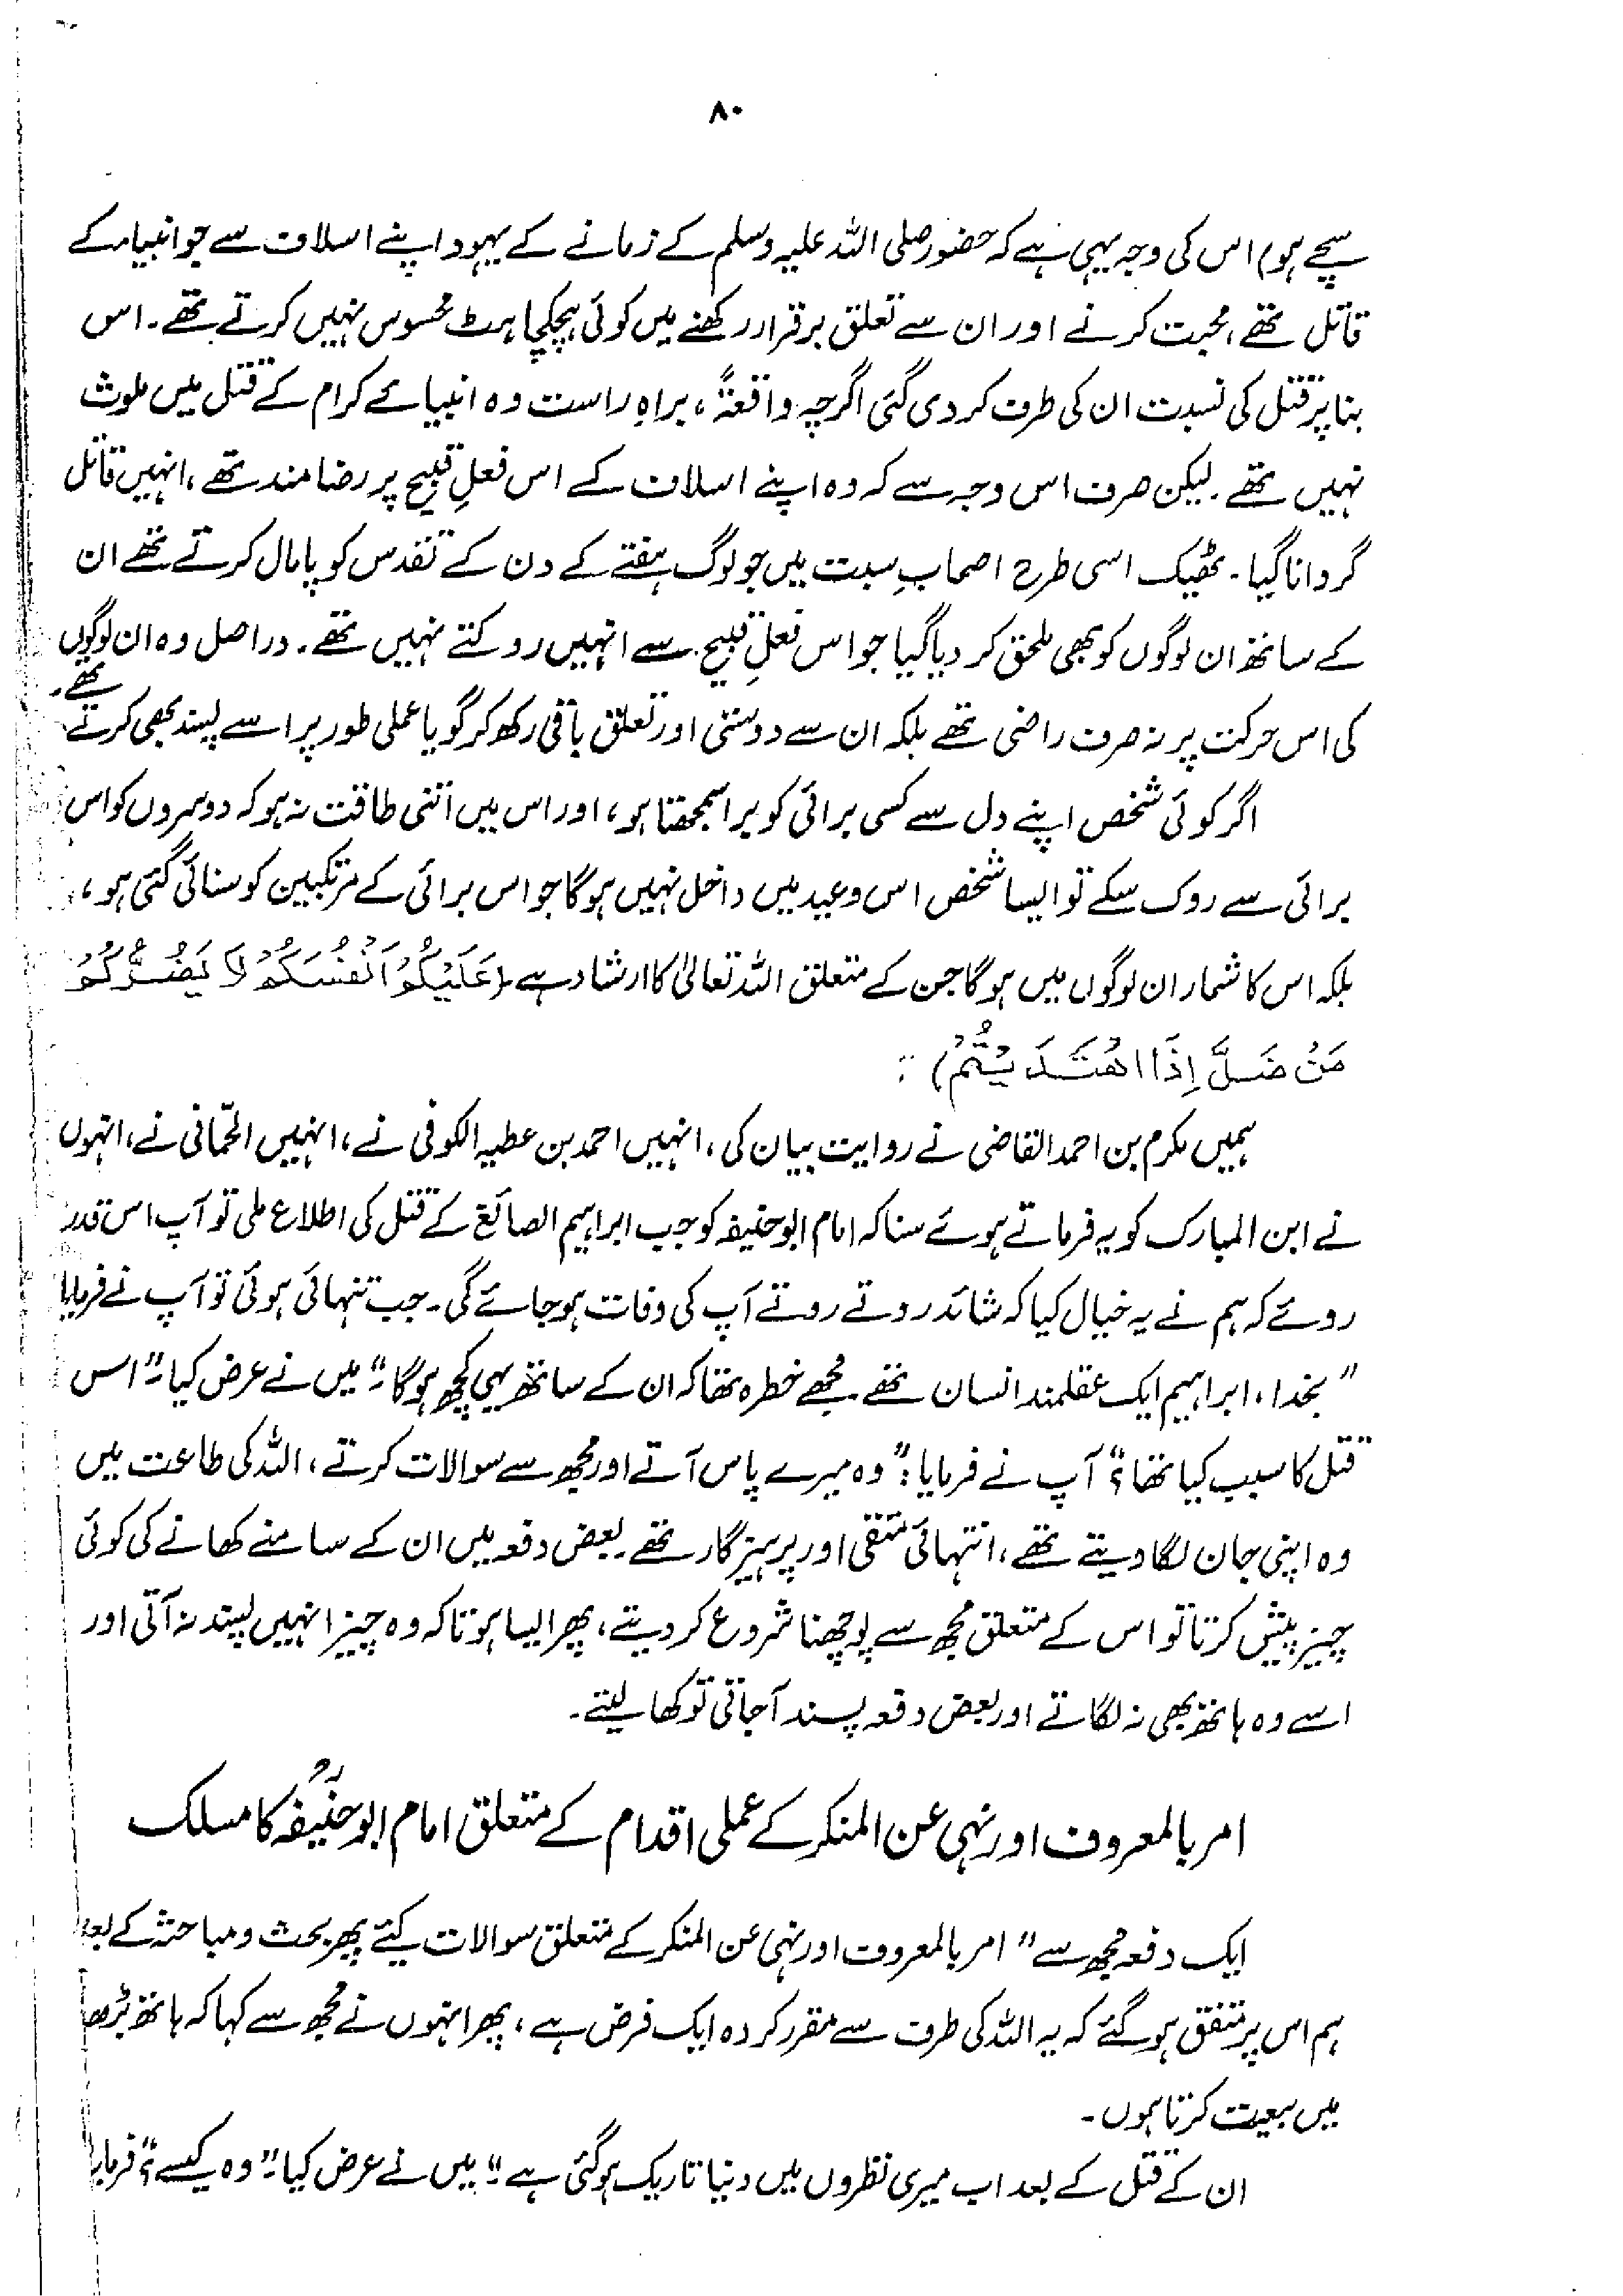 ۸۰
سچے ہو) اس کی وجہ یہی ہے کہ حضور صلی اللہ علیہ وسلم کے زمانے کے یہود اپنے اسلاف سے جو انبیاء کے
قاتل تھے، محبت کرنے اور ان سے تعلق برقرار رکھنے میں کوئی ہچکچاہٹ محسوس نہیں کرتے تھے۔ اس
بنا پر قتل کی نسبت ان کی طرف کر دی گئی اگرچہ واقعۃً، براہِ راست وہ انبیائے کرام کے قتل میں ملوث
نہیں تھے۔ لیکن صرف اس وجہ سے کہ وہ اپنے اسلاف کے اس فعلِ قبیح پر رضامند تھے، انہیں قاتل
گردانا گیا۔ ٹھیک اسی طرح اصحابِ سبت میں جو لوگ ہفتے کے دن کے تقدس کو پامال کرتے تھے ان
کے ساتھ ان لوگوں کو بھی ملحق کر دیا گیا جو اس فعلِ قبیح سے انہیں روکتے نہیں تھے۔ دراصل وہ ان لوگوں
کی اس حرکت پر نہ صرف راضی تھے بلکہ ان سے دوستی اور تعلق باقی رکھ کر گویا عملی طور پر اسے پسند بھی کرتے تھے۔
اگر کوئی شخص اپنے دل سے کسی برائی کو برا سمجھتا ہو، اور اس میں اتنی طاقت نہ ہو کہ دوسروں کو اس
برائی سے روک سکے تو ایسا شخص اس وعید میں داخل نہیں ہوگا جو اس برائی کے مرتکبین کو سنائی گئی ہو،
بلکہ اس کا شمار ان لوگوں میں ہوگا جن کے متعلق اللہ تعالیٰ کا ارشاد ہے (عَلَيْكُمْ اَنْفُسَكُمْ لَا يَضُرُّكُمْ
مَنْ ضَلَّ اِذَا اهْتَدَيْتُمْ) :
ہمیں مکرم بن احمد القاضی نے روایت بیان کی، انہیں احمد بن عطیہ الکوفی نے، انہیں الحمّانی نے، انہوں
نے ابن المبارک کو یہ فرماتے ہوئے سنا کہ امام ابوحنیفہ کو جب ابراہیم الصائغ کے قتل کی اطلاع ملی تو آپ اس قدر
روئے کہ ہم نے یہ خیال کیا کہ شائد روتے روتے آپ کی وفات ہو جائے گی۔ جب تنہائی ہوئی تو آپ نے فرمایا
"بخدا، ابراہیم ایک عقلمند انسان تھے۔ مجھے خطرہ تھا کہ ان کے ساتھ یہی کچھ ہوگا" میں نے عرض کیا۔" اس
قتل کا سبب کیا تھا؟" آپ نے فرمایا: "وہ میرے پاس آتے اور مجھ سے سوالات کرتے، اللہ کی طاعت میں
وہ اپنی جان لگا دیتے تھے، انتہائی متقی اور پرہیزگار تھے۔ بعض دفعہ میں ان کے سامنے کھانے کی کوئی
چیز پیش کرتا تو اس کے متعلق مجھ سے پوچھنا شروع کر دیتے، پھر ایسا ہوتا کہ وہ چیز انہیں پسند نہ آتی اور
اسے وہ ہاتھ بھی نہ لگاتے اور بعض دفعہ پسند آجاتی تو کھا لیتے۔
امر بالمعروف اور نہی عن المنکر کے عملی اقدام کے متعلق امام ابو حنیفہؒ کا مسلک
ایک دفعہ مجھ سے "امر بالمعروف اور نہی عن المنکر کے متعلق سوالات کیئے پھر بحث و مباحثہ کے بعد
ہم اس پر متفق ہو گئے کہ یہ اللہ کی طرف سے مقرر کردہ ایک فرض ہے، پھر انہوں نے مجھ سے کہا کہ ہاتھ بڑھا
میں بیعت کرتا ہوں۔
ان کے قتل کے بعد اب میری نظروں میں دنیا تاریک ہو گئی ہے" میں نے عرض کیا۔" وہ کیسے؟" فرمایا